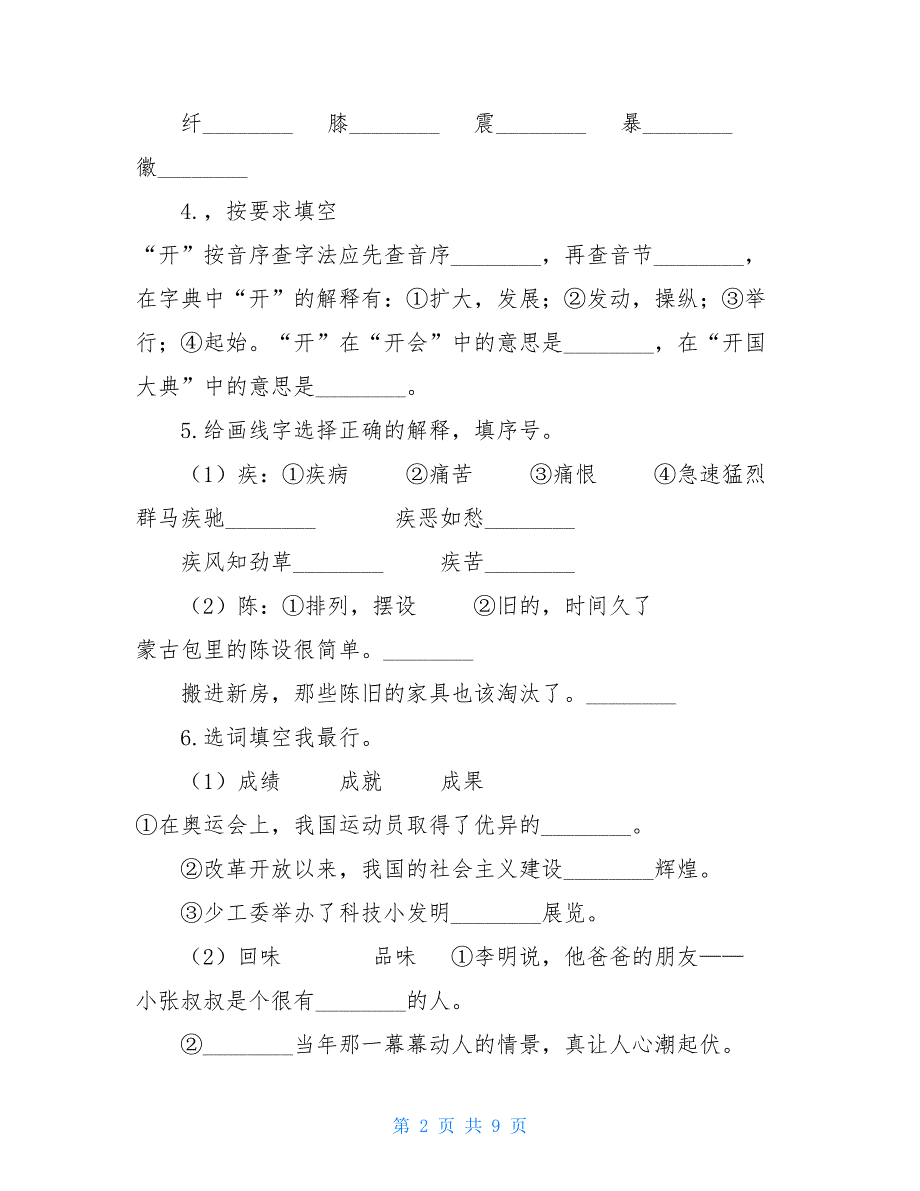 纤________ 膝________ 震________ 暴________
徽________
4.，按要求填空
“开”按音序查字法应先查音序________，再查音节________，
在字典中“开”的解释有：①扩大，发展；②发动，操纵；③举
行；④起始。“开”在“开会”中的意思是________，在“开国
大典”中的意思是________。
5.给画线字选择正确的解释，填序号。
（1）疾：①疾病 ②痛苦 ③痛恨 ④急速猛烈
群马疾驰________ 疾恶如愁________
疾风知劲草________ 疾苦________
（2）陈：①排列，摆设 ②旧的，时间久了
蒙古包里的陈设很简单。________
搬进新房，那些陈旧的家具也该淘汰了。________
6.选词填空我最行。
（1）成绩 成就 成果
①在奥运会上，我国运动员取得了优异的________。
②改革开放以来，我国的社会主义建设________辉煌。
③少工委举办了科技小发明________展览。
（2）回味 品味 ①李明说，他爸爸的朋友——
小张叔叔是个很有________的人。
②________当年那一幕幕动人的情景，真让人心潮起伏。
第 2 页 共 9 页